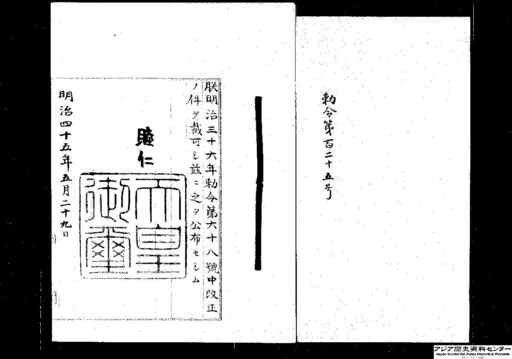 勅令第百二十五号
朕明治三十六年勅令第六十八號中改正
ノ件ヲ裁可シ茲ニ之ヲ公布セシム
睦仁
天皇
御璽
明治四十五年五月二十九日
アジア歴史資料センター
Japan Center for Asian Historical Records